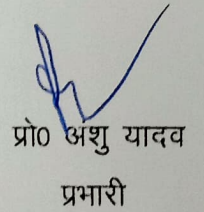 प्रो0 अंशु यादव
प्रभारी